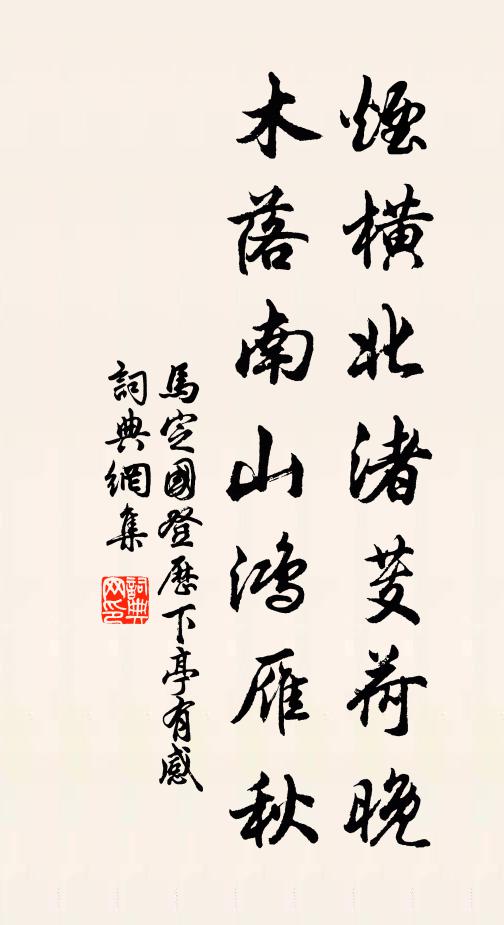 煙橫北渚芰荷晚
木落南山鴻雁秋
馬定國登歷下亭有感
詞典網集
詞典
网印